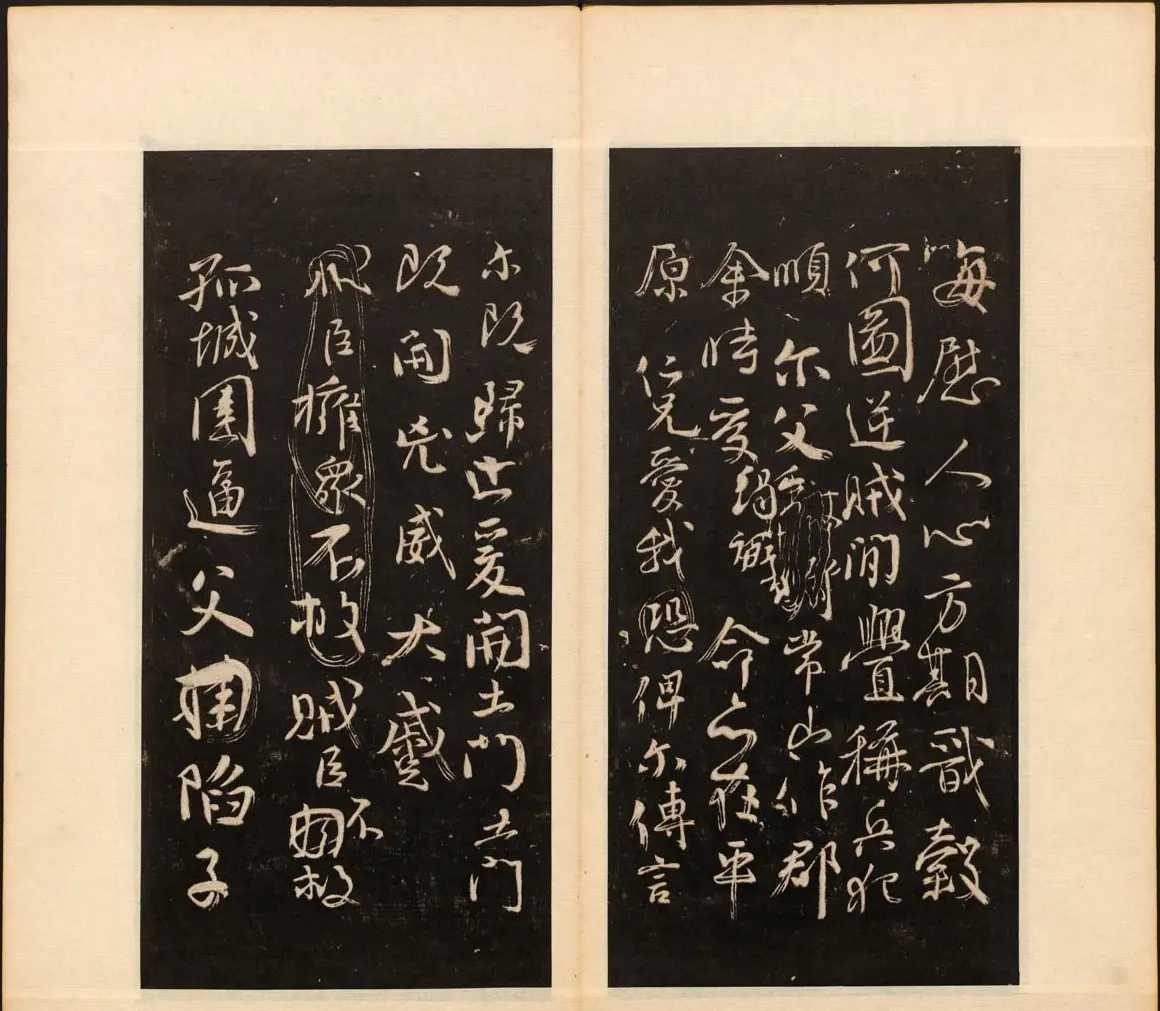 每慰人心方期戩穀
何圖逆賊閒釁稱兵犯
順尔父竭誠常山作郡
余時受命亦在平
原仁兄愛我恐俾尔傳言
尔既歸止爰開土門土門
既開凶威大蹙
賊臣擁眾不救賊臣不救
孤城圍逼父陷子